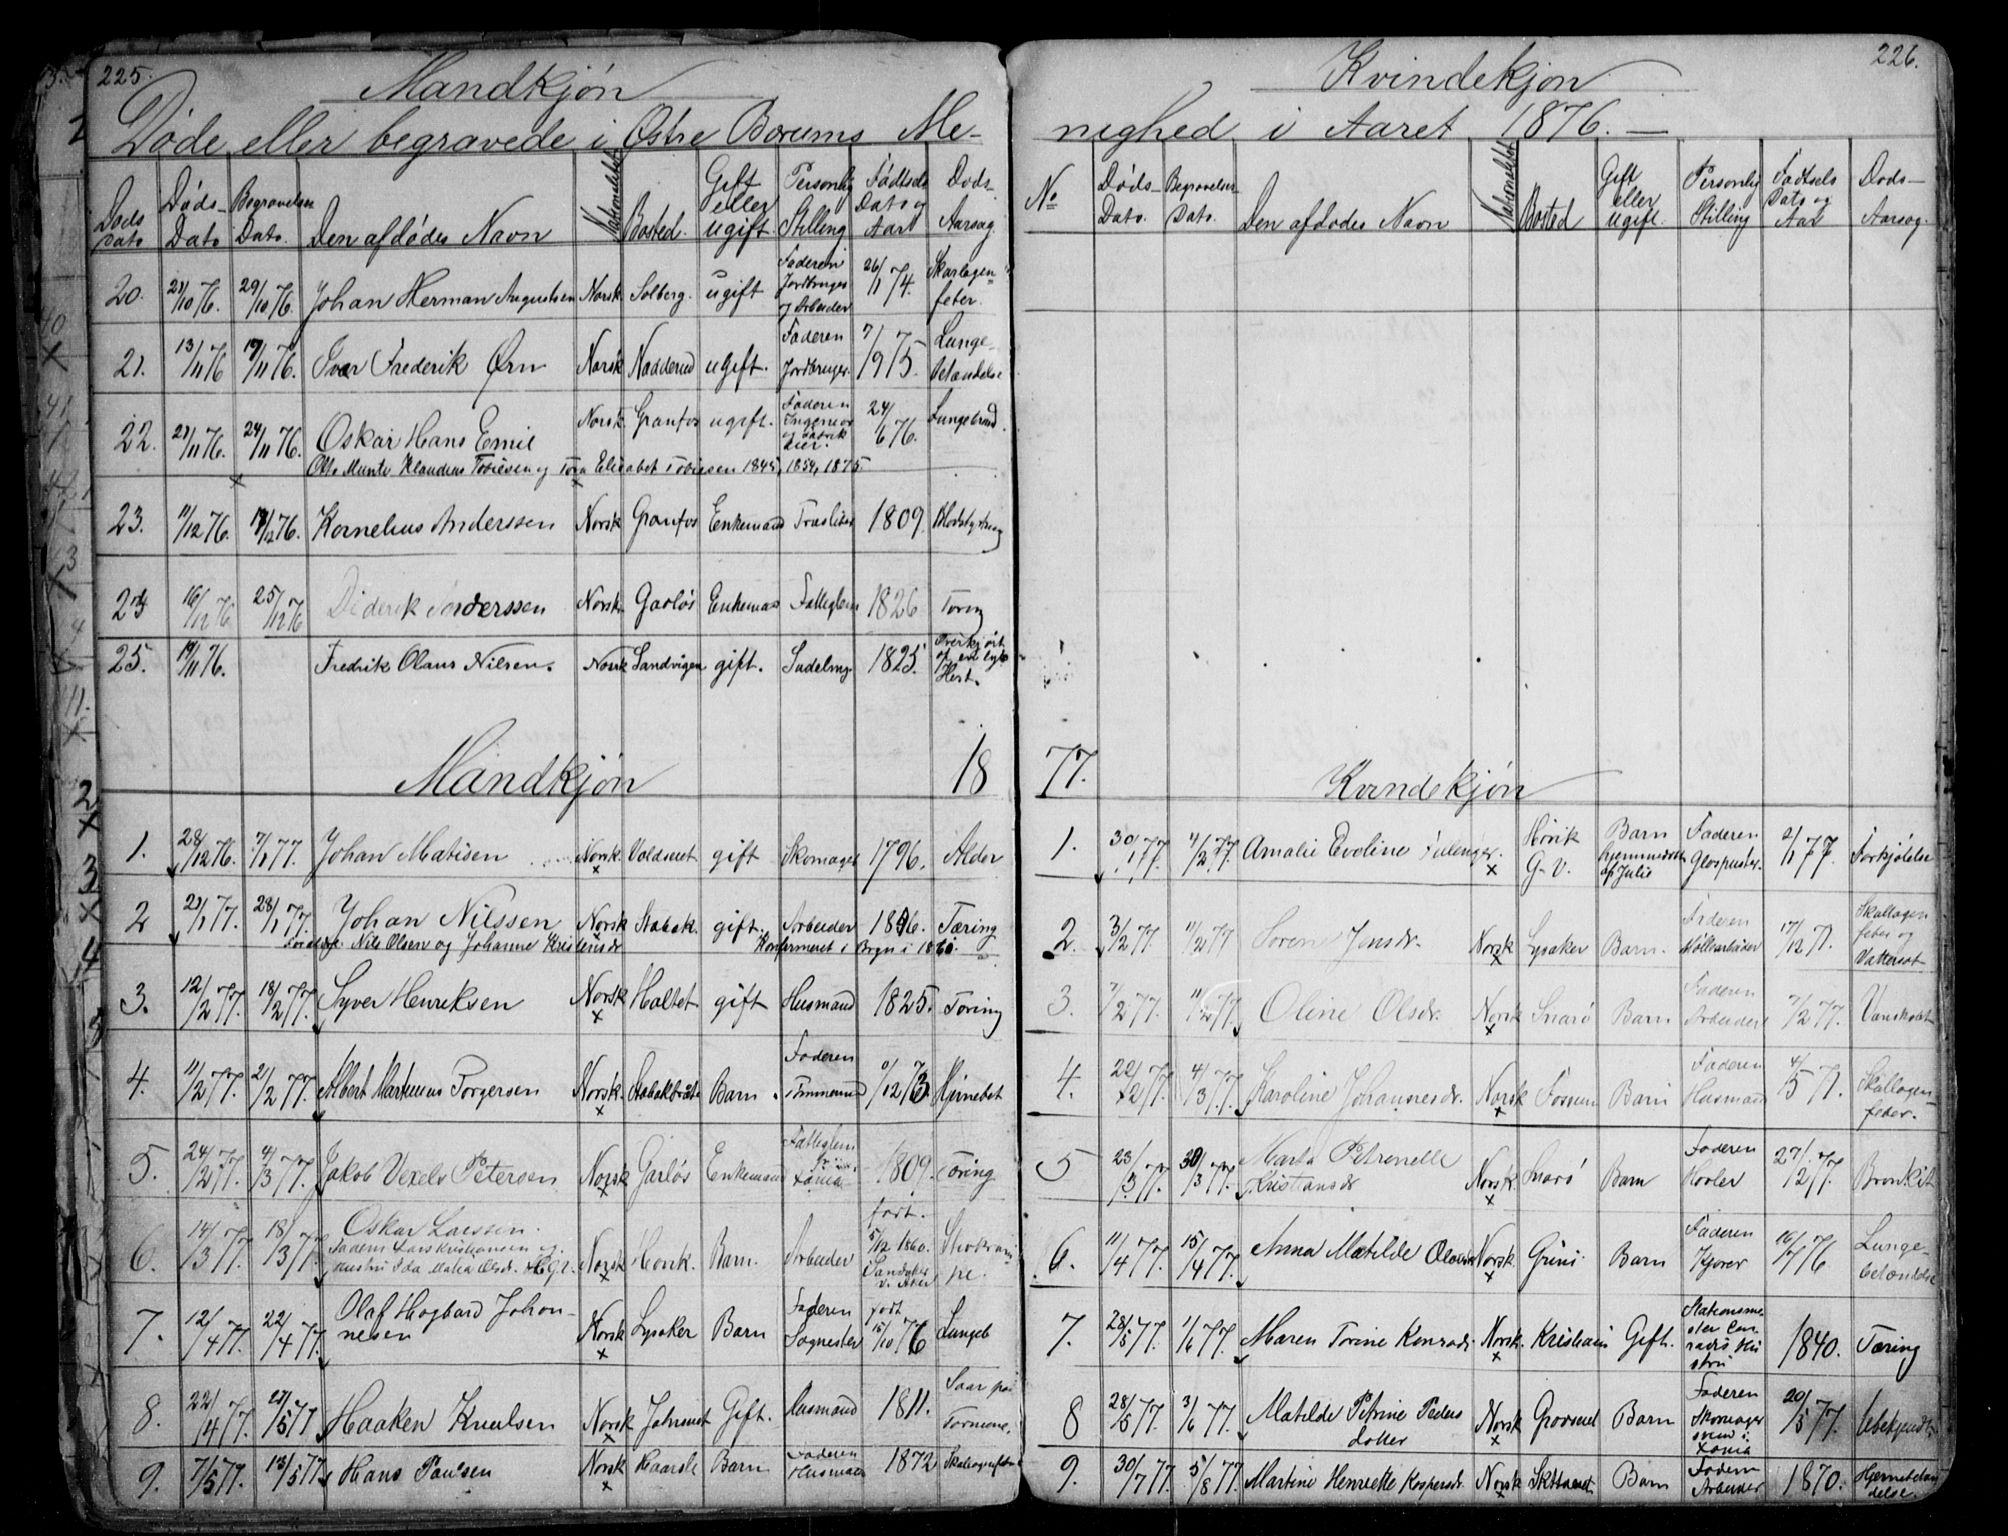 225.
Mandkjøn
Døde eller begravede i Østre Bærums Me-
Døds Dato | Døds- Dato | Begravelses Dato. | Den afdødes Navn | Nationalitet | Bosted. | Gift eller ugift | Personlig Stilling | Fødtsels Dato og Aar | Døds- Aarsag
20. | 21/10 76. | 29/10 76. | Johan Herman Augustsen | Norsk | Solberg. | ugift | Faderen Jordbruger og Arbeider | 26/1 74. | Skarlagen- feber.
21. | 13/11 76 | 19/11 76. | Ivar Frederik Ørn | Norsk | Nadderud | ugift. | Faderen Jordbruger. | 7/9 75. | Lunge- betændelse
22. | 21/11 76. | 24/11 76. | Oskar Hans Emil | Norsk. | Granfos | ugift. | Faderen Ingeniør og Fabrik eier. | 24/6 76. | Lungebrand.
Otto Munte Klaudius Tobiesen og Tora Elisabet Tobiesen 1845, 1854, 1875
23. | 11/12 76. | /12 76. | Kornelius Anderssen | Norsk | Granfos | Enkemand | Træsliber | 1809. | Blodstyrtning
24 | 16/12 76 | 25/12 76 | Diderik Anderssen | Norsk. | Garløs | Enkemand | Fattiglem | 1826 | Tæring
25. | 19/11 76. | Fredrik Olaus Nilsen. | Norsk | Sandvigen | gift. | Sadelmager | 1825. | Overkjørt af en Hest.
Mandkjøn 18
1. | 28/12 76. | 7/1 77. | Johan Matisen | Norsk. | Valdseret | gift | Skomager | 1796. | Alder
2 | 21/1 77. | 28/1 77. | Johan Nilssen | Norsk | Stabæk. | gift. | Arbeider | 1846. | Tæring
Forældre Nils Olsen og Johanne Kristensdr. Konfirmeret i Bryn i 1860.
3. | 12/2 77. | 18/2 77. | Syver Henriksen | Norsk | Haltet | gift | Husmand | 1825. | Tæring
4. | 11/2 77. | 21/2 77. | Albert Martinius Torgersen | Norsk | Stabækbråten | Barn. | Faderen Tømmermand | /12 73 | Hjernebet
5. | 24/2 77. | 4/3 77. | Jakob Vexels Petersen | Norsk | Garløs | Enkemand | Fattiglem Xania | 1809. | Tæring
6. | 14/3 77. | 18/3 77. | Oskar Larssen. Faderen Lars Kristiansen og Hustru Ida Maria Olsdr. | Norsk | Høvik. | Barn. | Arbeider | født. 5/12 1860. Sandaker v. Aker | Skrøfuri pe.
7. | 12/4 77. | 22/4 77. | Olaf Hagbard Johan- nesen | Norsk | Lysaker | Barn | Faderen | født 15/10 76 | Lungeb
8. | 22/4 77. | 27/5 77 | Haaken Knudsen | Norsk | Jahrent | Gift. | Husmand | 1811. | Saar paa Tarmene.
9. | 7/5 77. | 13/5 77. | Hans Paulsen | Norsk | Haarsle | Barn | Faderen Husmand | 1872 | Skarlagensfeber
226.
Kvindekjøn
nighed i Aaret 1876. —
No | Døds- Dato. | Begravelses Dato. | Den afdødes Navn | Nationalitet | Bosted | Gift eller ugift. | Personlig Stilling | Fødtsels Dato og Aar | Døds- Aarsag.
77. Kvindekjøn
1. | 30/1 77. | 4/2 77. | Amalie Eveline | Høvik G. V. | Barn hjemmedøbt af Julie | Faderen Glaspuster. | 2/1 77. | Forkjølelse
2. | 3/2 77. | 11/2 77 | Soren Jensdr. | Norsk | Lysaker | Barn. | Faderen Møllearbeider | 17/12 77. | Skallagen feber og Vattersot
3. | 7/2 77. | 11/2 77. | Oline Olsdr. | Norsk | Snarø | Barn | Faderen Arbeider | 7/2 77. | Vanskabt
4. | 22/2 77. | 4/3 77. | Karoline Johannesdr. | Norsk | Fossum | Barn | Faderen Husmand | 4/5 77. | Skallagen- feber.
5 | 23/3 77. | 30/3 77. | Marta Petronelle Kristiansdr | Norsk. | Snarø | Barn | Faderen | 27/12 77. | Bronkit
6. | 11/4 77 | 15/4 77. | Anna Matilde Olausdr | Norsk. | Grini | Barn | Faderen Kjører | 16/7 76 | Lunge- betændelse
7. | 28/5 77. | 1/6 77. | Maren Torine Konradsdr. | Norsk. | Kristiania | Gift. | Stationsme- ster Con- rads Hu stru | 1840. | Tæring
8 | 28/5 77. | 3/6 77. | Matilde Petrine Peders datter | Norsk | Grorud | Barn | Faderen Skomager svend i Xania | 20/5 77. | Ubekjendt
9. | 30/7 77. | 5/8 77. | Martine Henriette Kaspersdr. | Norsk | Barn | Faderen Arbeider | 1870. | Hjernebetæn delse.